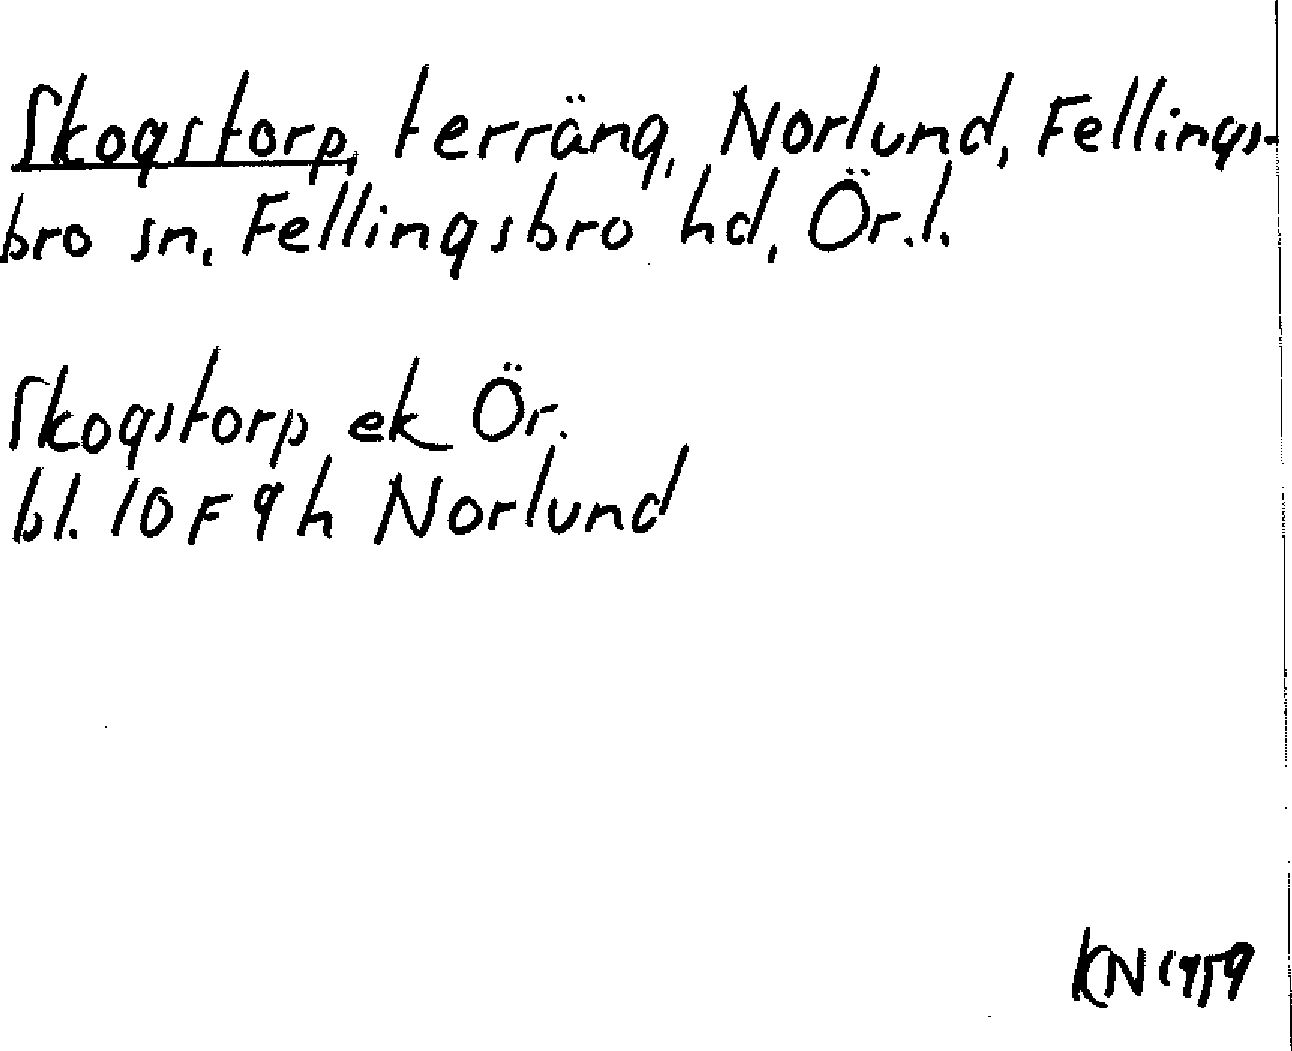 Skogstorp, terräng, Norlund, Fellings-
bro sn, Fellingsbro hd, Ör.l.
Skogstorp ek Ör.
bl. 10 F 9 h Norlund
KN 1959